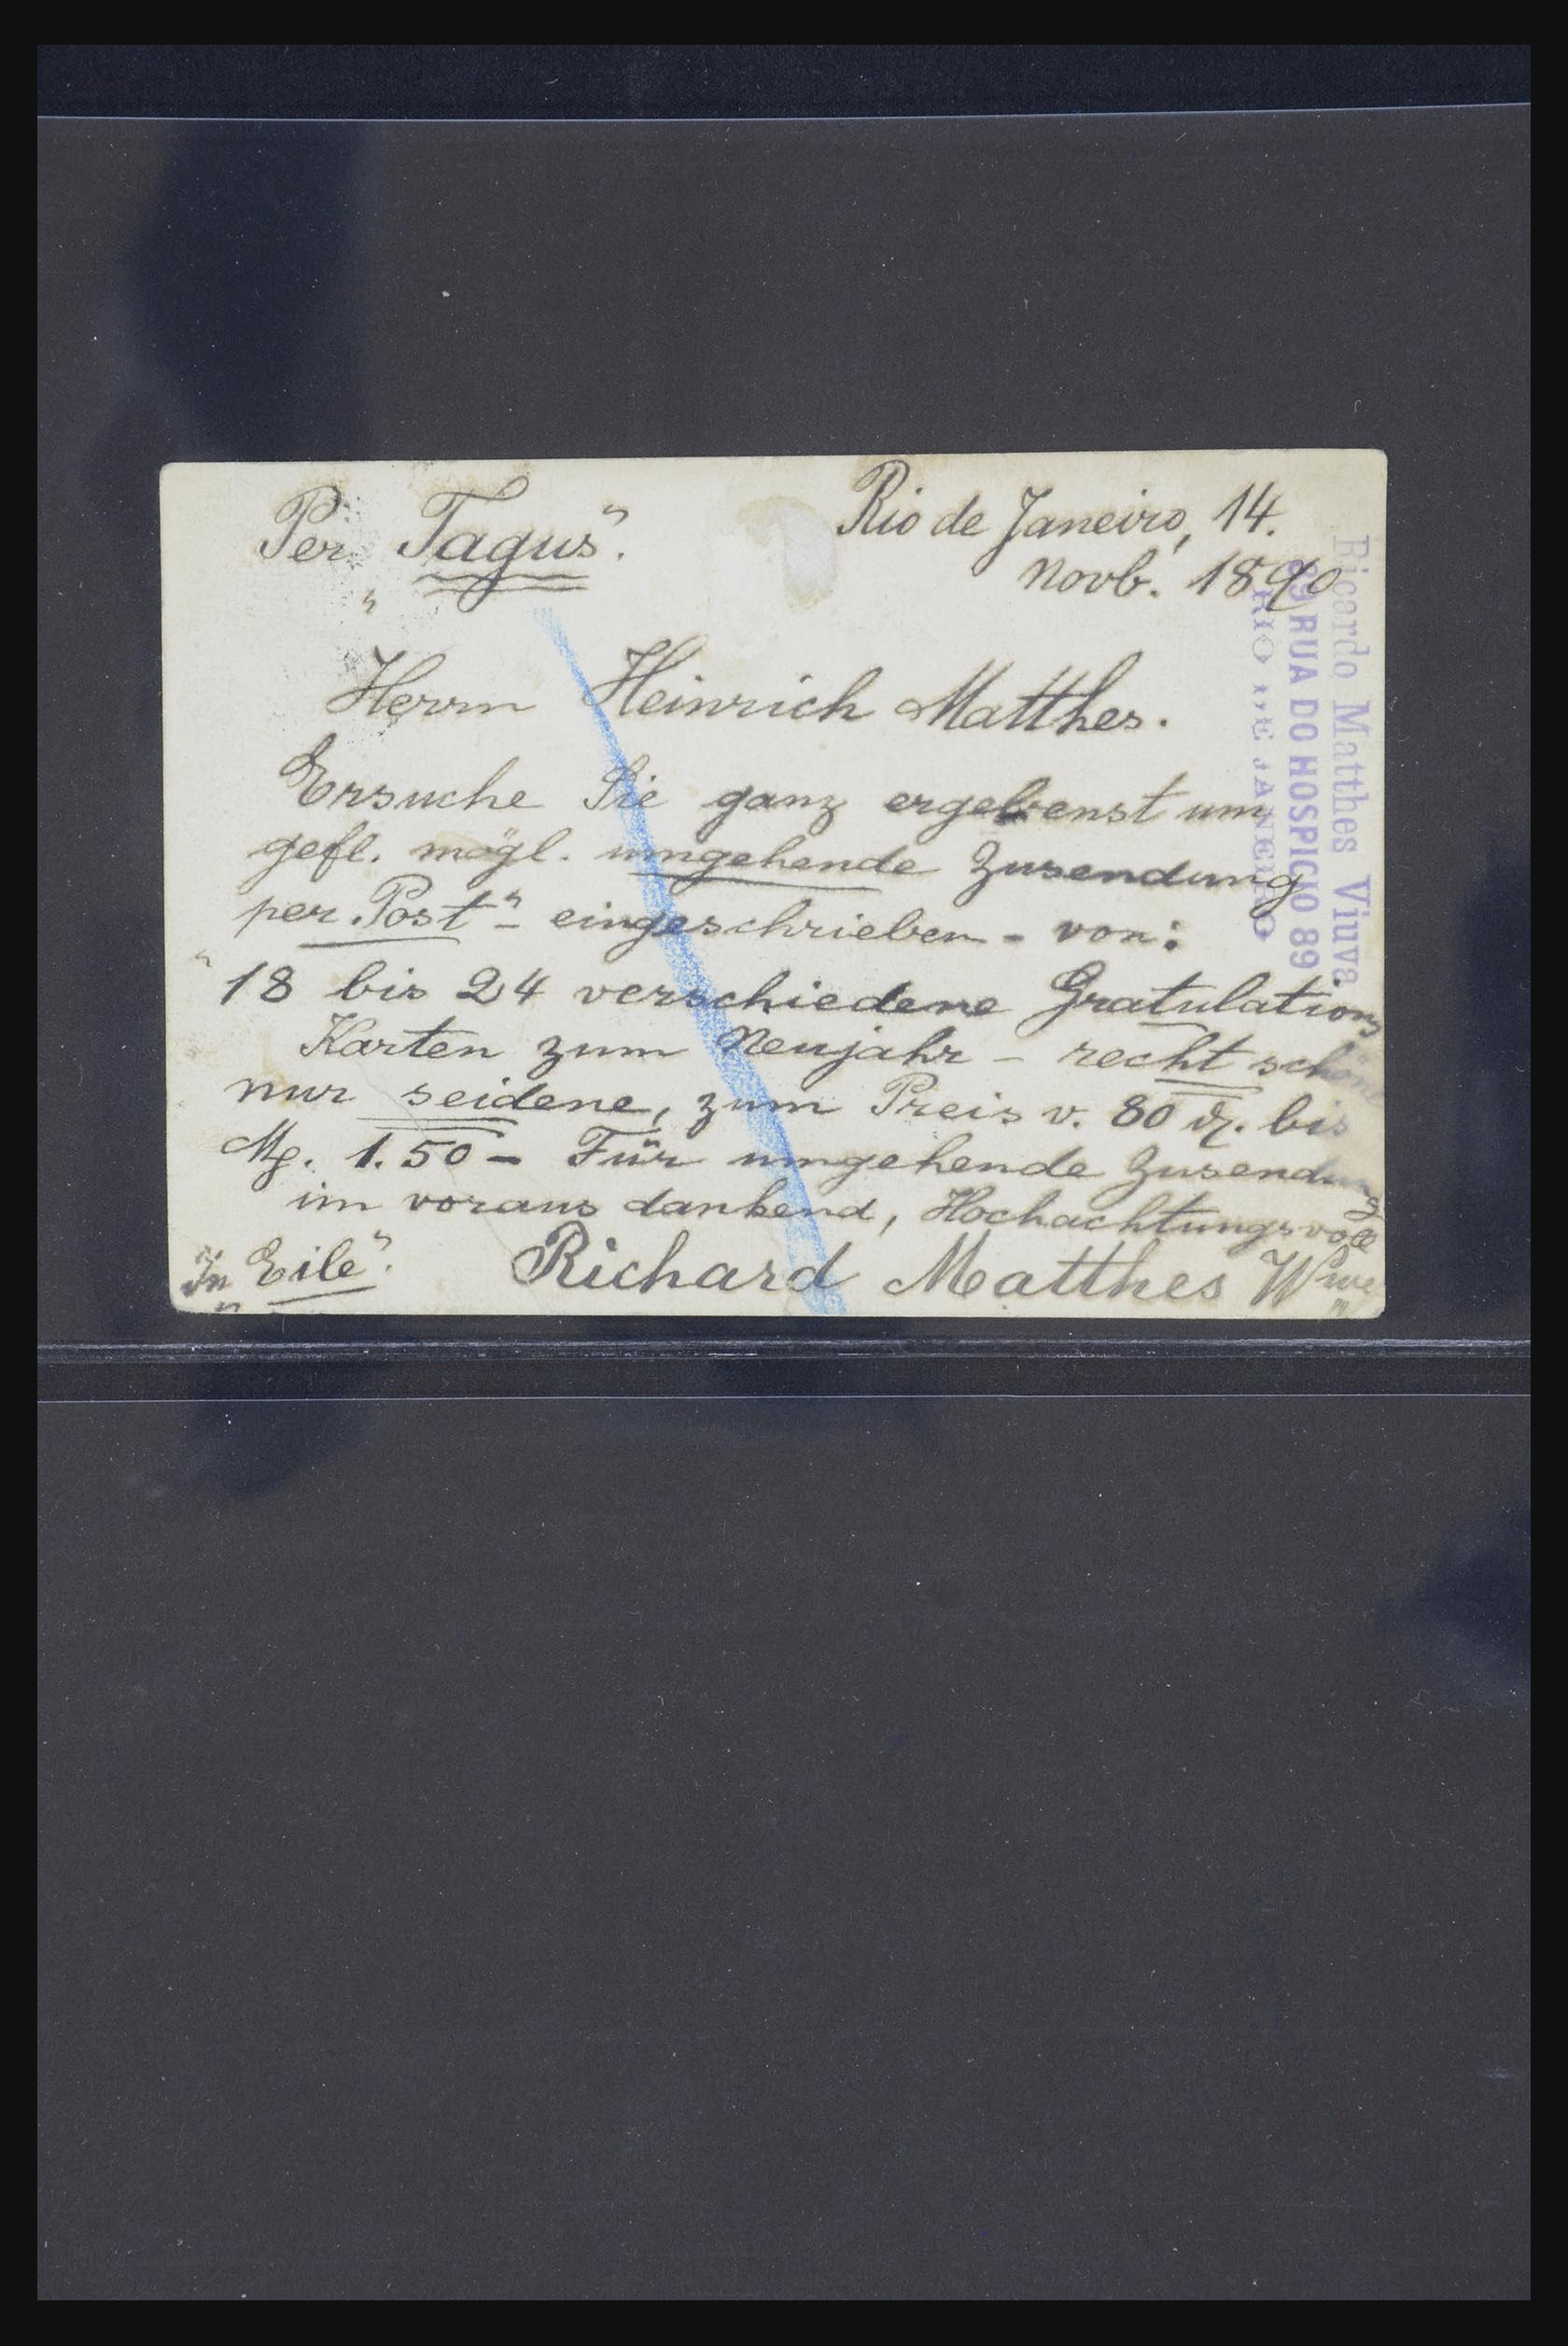 Per „Tagus“.
Rio de Janeiro, 14.
Novb. 1890
Herrn Heinrich Matthes.
Ersuche Sie ganz ergebenst um
gefl. mögl. umgehende Zusendung
per „Post“ - eingeschrieben - von:
18 bis 24 verschiedene Gratulations
Karten zum Neujahr - recht schöne
nur seidene, zum Preis v. 80 ₰. bis
Mg. 1.50 - Für umgehende Zusendung
im voraus dankend, Hochachtungsvoll
„In Eile“.
Richard Matthes Wwe
Ricardo Matthes Viuva
89 RUA DO HOSPICIO 89
RIO DE JANEIRO